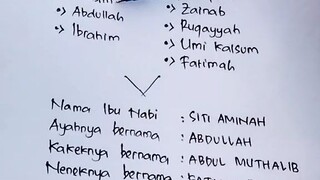 •> Abdullah
•> Ibrahim
•> Zainab
•> Ruqayyah
•> Umi Kalsum
•> Fatimah
Nama Ibu Nabi : SITI AMINAH
Ayahnya bernama : ABDULLAH
Kakeknya bernama : ABDUL MUTHALIB
Neneknya bernama :